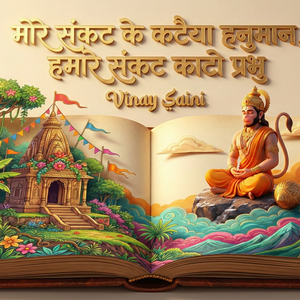 मोरे संकट के कटैया हनुमान
हमारे संकट काटो प्रभु
Vinay Saini